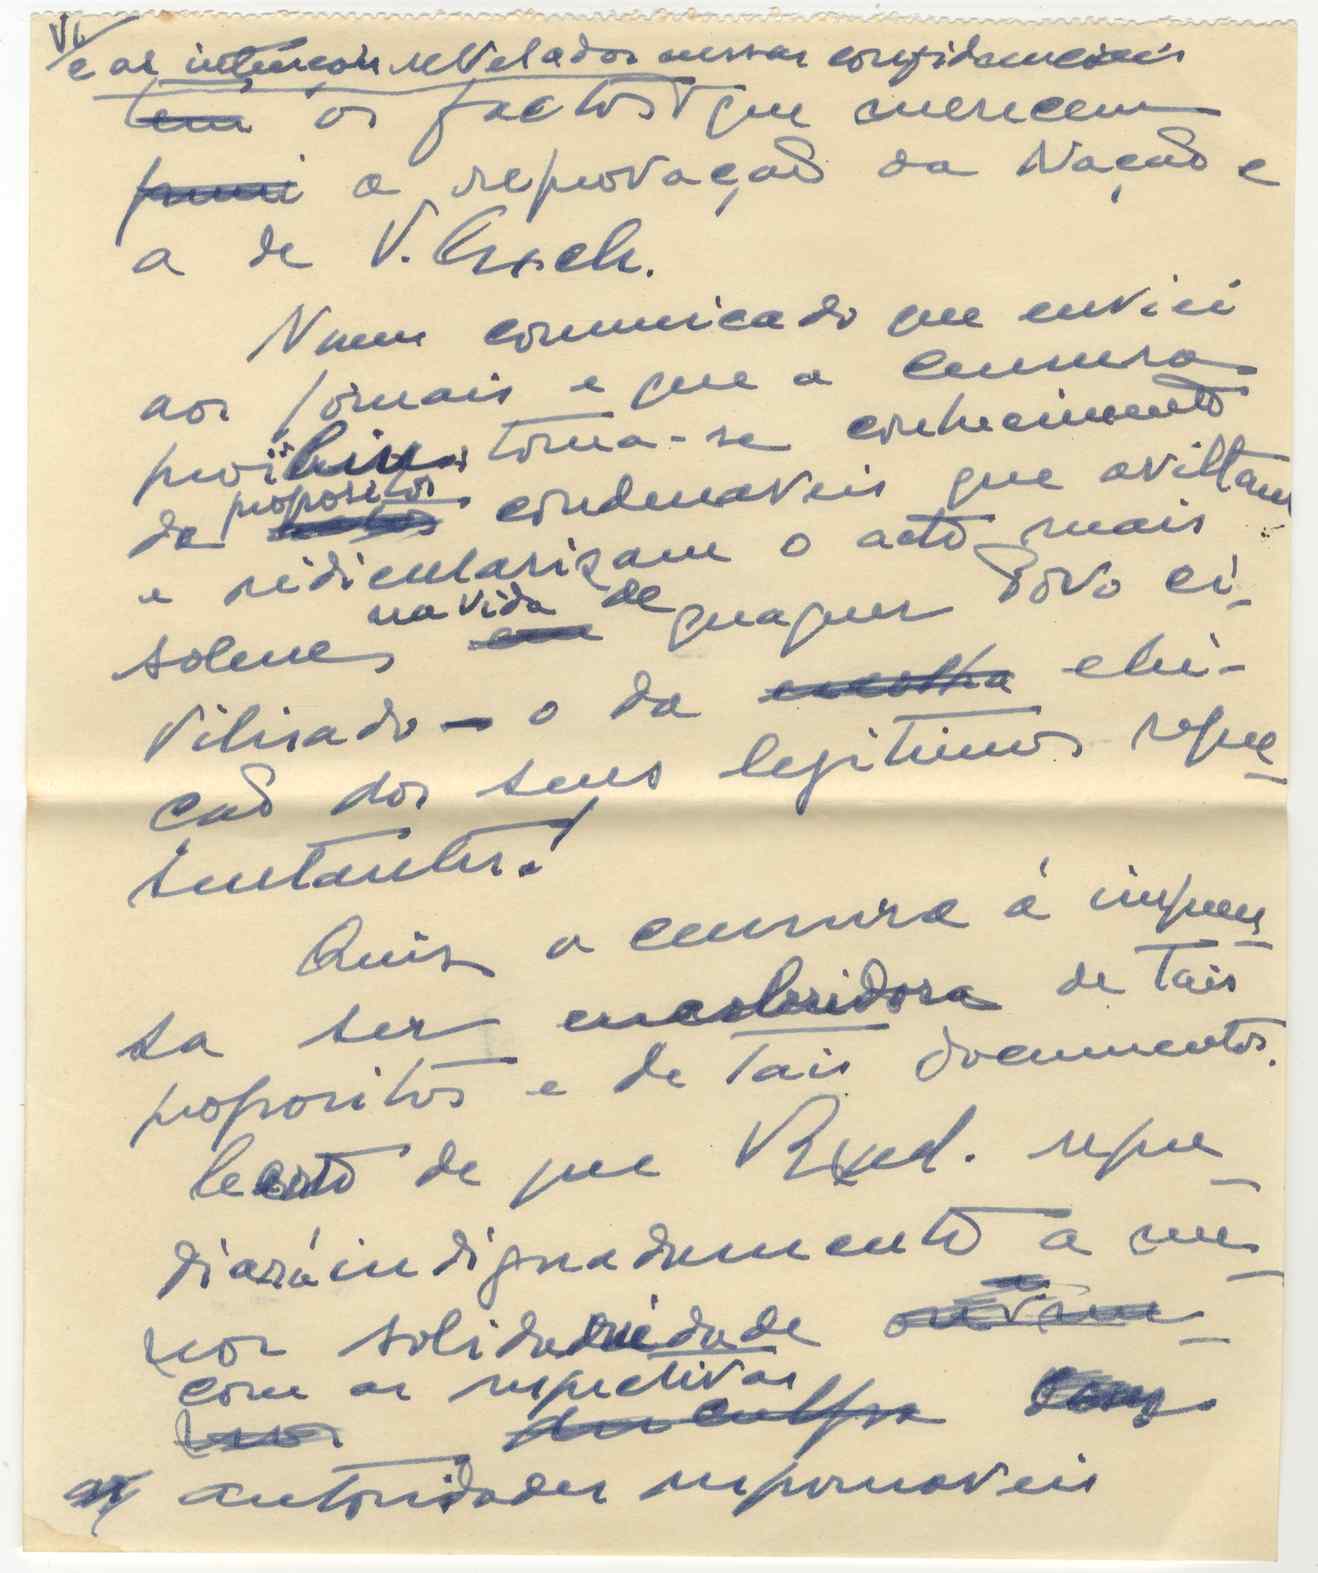 VI
e as intenções reveladas nessas confidenciais
tem os factos que merecem
puni a reprovação da Nação e
a de V. Excia.
Num comunicado que enviei
aos jornais e que a censura
proibiu, torna-se conhecimento
de propositos condenaveis que aviltam
e ridicularizam o acto mais
solene, na vida de quaquer Povo ci-
vilisado — o da escolha elei-
ção dos seus legitimos repre-
sentantes!
Quis a censura á impren-
sa ser encobridora de tais
propositos e de tais documentos.
Certo de que V. Exa. repu-
diará indignadamente a me-
nor solidariedade
com as respectivas
autoridades responsaveis